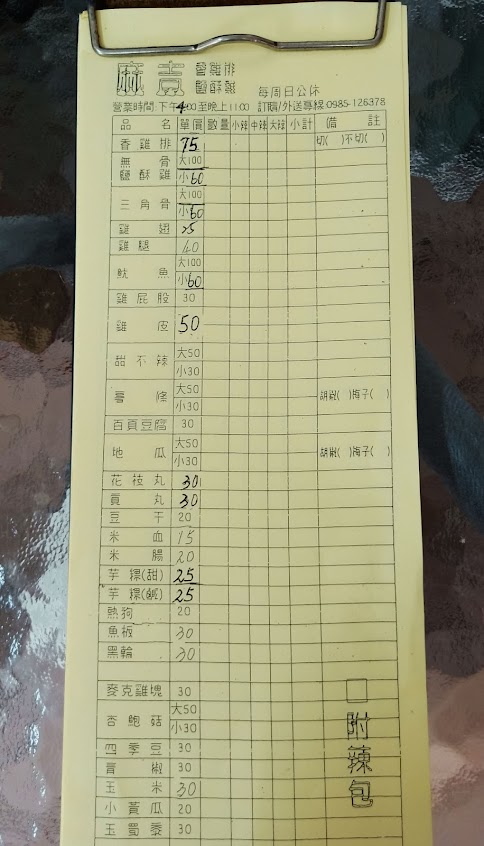 麻吉 香雞排 鹽酥雞 每周日公休
營業時間:下午4:00至晚上11:00 訂購/外送專線:0985-126378
品名 單價 數量 小辣 中辣 大辣 小計 備註
香雞排 75 切( )不切( )
無骨鹽酥雞 大100
小60
三角骨 大100
小60
雞翅 25
雞腿 40
魷魚 大100
小60
雞屁股 30
雞皮 50
甜不辣 大50
小30
薯條 大50 胡椒( )梅子( )
小30
百頁豆腐 30
地瓜 大50 胡椒( )梅子( )
小30
花枝丸 30
貢丸 30
豆干 20
米血 15
米腸 20
芋粿(甜) 25
芋粿(鹹) 25
熱狗 20
魚板 30
黑輪 30
麥克雞塊 30
杏鮑菇 大50
小30
四季豆 30
青椒 30
玉米 30
小黃瓜 20
玉蜀黍 30
□附辣包